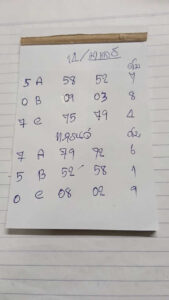 12/
5 A 58 52 7
0 B 09 03 8
7 C 75 79 4
7 A 79 72 6
5 B 52 58 1
0 C 08 02 9